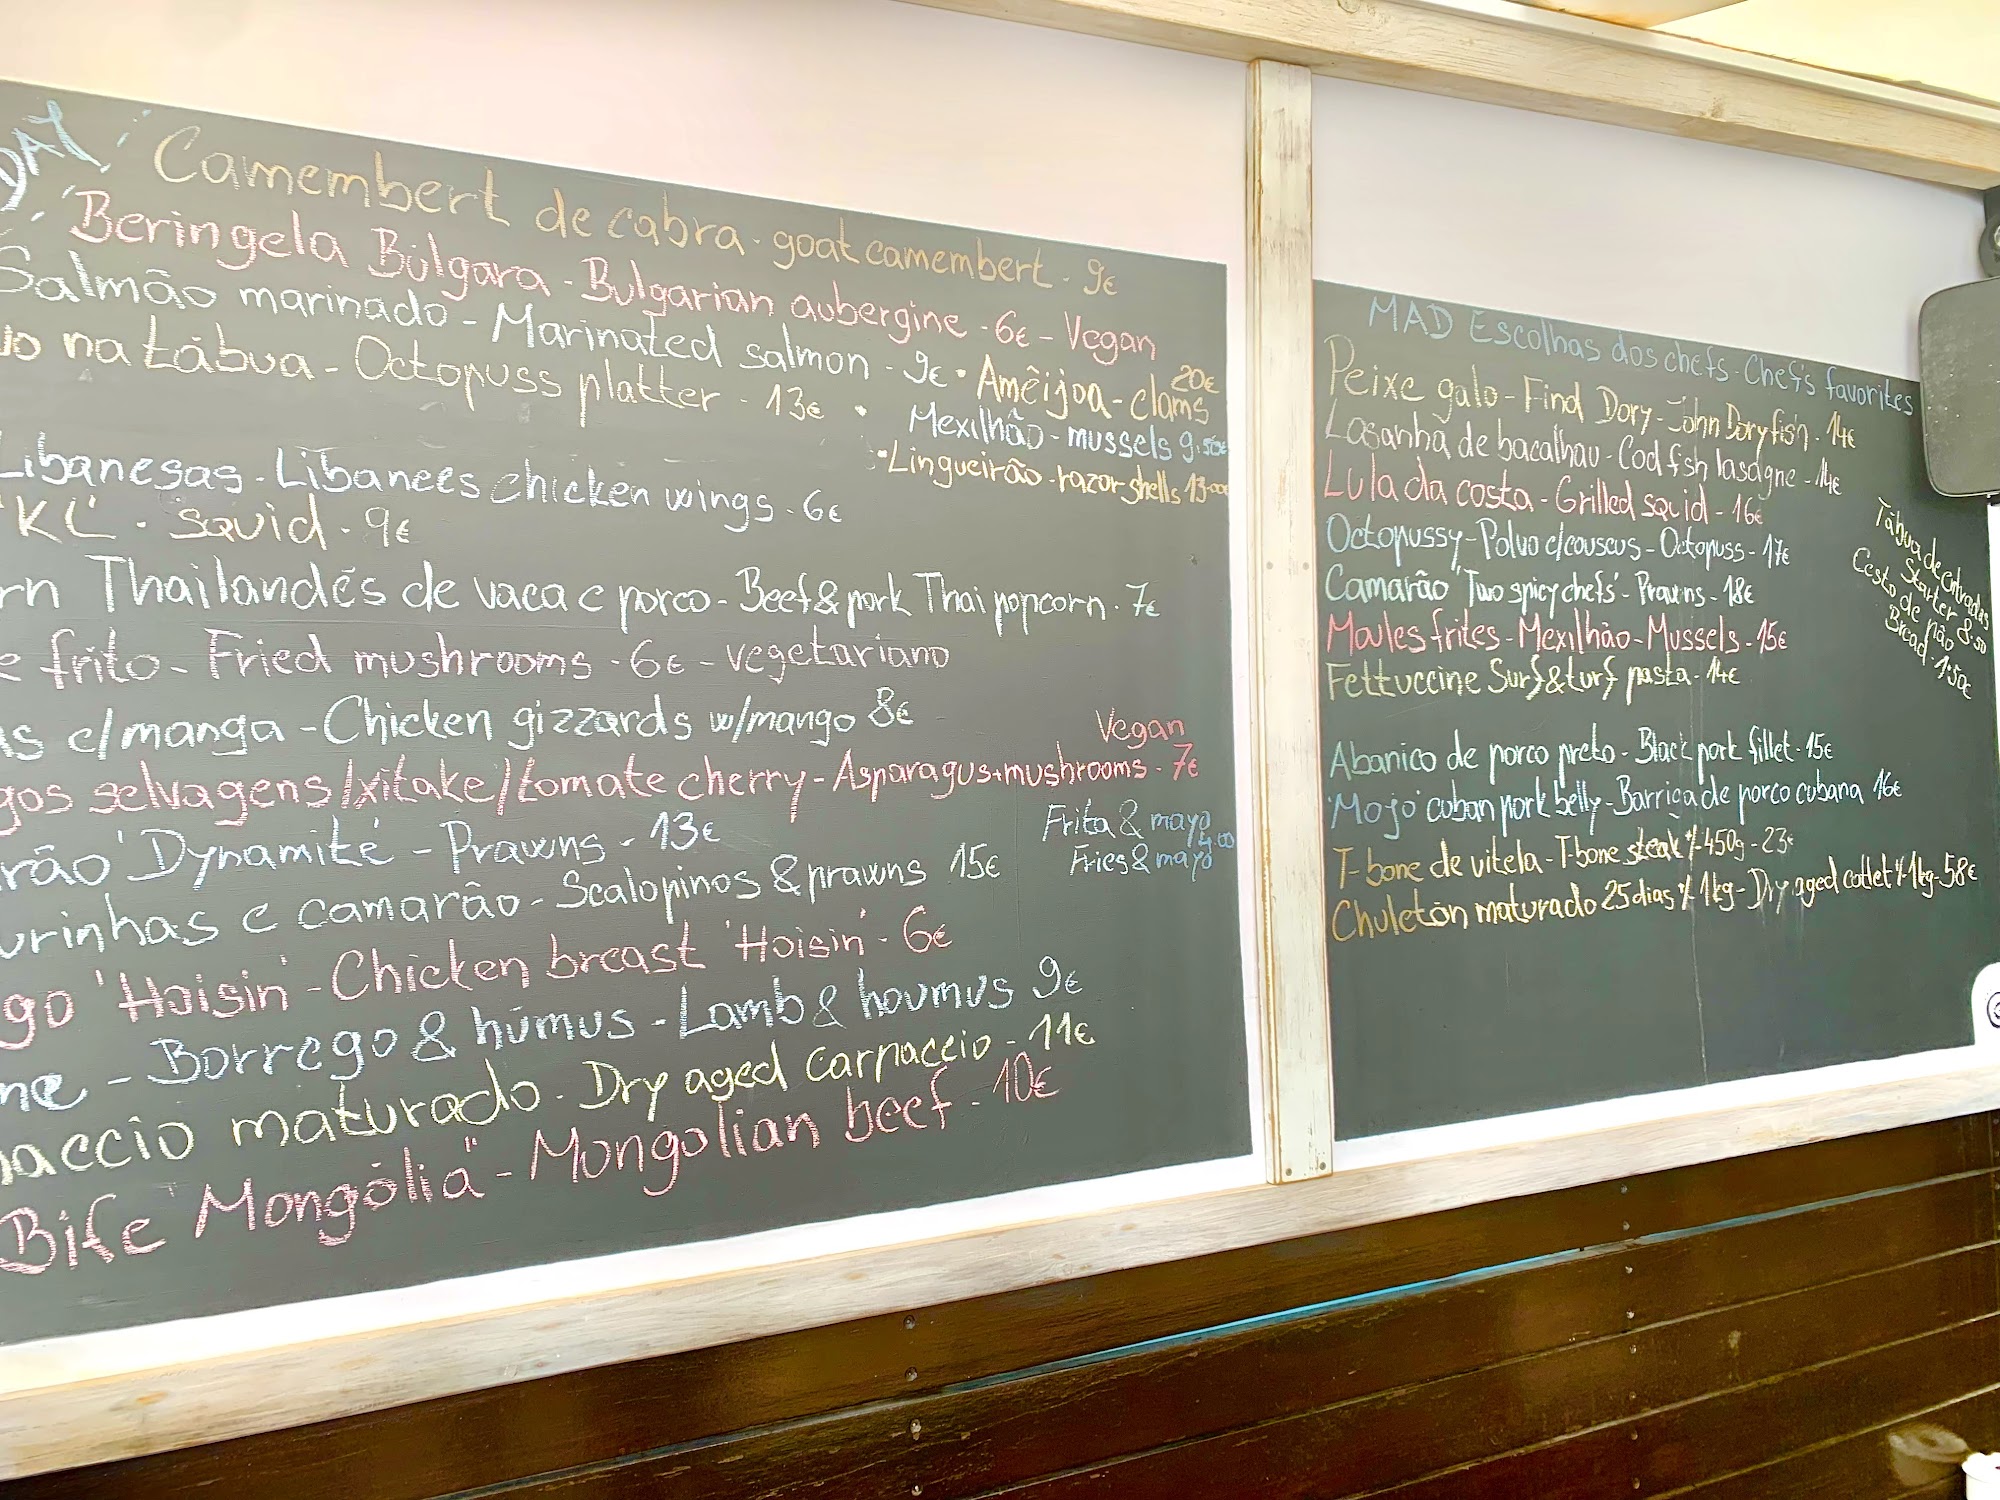 DAY
Camembert de cabra - goat camembert - 9€
Beringela Búlgara - Bulgarian aubergine - 6€ - Vegan
Salmão marinado - Marinated salmon - 9€
na tábua - Octopuss platter - 13€
• Amêijoa - clams 20€
• Mexilhão - mussels 9.50€
• Lingueirão - razor shells 13.00€
Libanesas - Libanees chicken wings - 6€
'KL' - Squid - 9€
rn Thailandés de vaca e porco - Beef & pork Thai popcorn - 7€
e frito - Fried mushrooms - 6€ - vegetariano
as c/manga - Chicken gizzards w/mango 8€
gos selvagens/xitake/tomate cherry - Asparagus+mushrooms - 7€
Vegan
rão 'Dynamite' - Prawns - 13€
urinhas e camarão - Scalopinos & prawns 15€
Frita & mayo
Fries & mayo 4.00
go 'Hoisin' - Chicken breast 'Hoisin' - 6€
ne - Borrego & húmus - Lamb & houmus 9€
paccio maturado - Dry aged carpaccio - 11€
Bife "Mongólia" - Mongolian beef - 10€
MAD Escolhas dos chefs - Chef's favorites
Peixe galo - Find Dory - John Dory fish - 14€
Lasanha de bacalhau - Cod fish lasagne - 14€
Lula da costa - Grilled squid - 16€
Octopussy - Polvo c/couscus - Octopuss - 17€
Camarão 'Two spicy chefs' - Prawns - 18€
Moules frites - Mexilhão - Mussels - 15€
Fettuccine Surf & turf pasta - 14€
Abanico de porco preto - Black pork fillet - 15€
'Mojo' cuban pork belly - Barriga de porco cubana 16€
T-bone de vitela - T-bone steak +/- 450g - 23€
Chuletón maturado 25 dias +/- 1kg - Dry aged cotlet +/- 1kg - 58€
Tábua de entradas
Starter 8.50
Cesto de pão
Bread - 1.50€